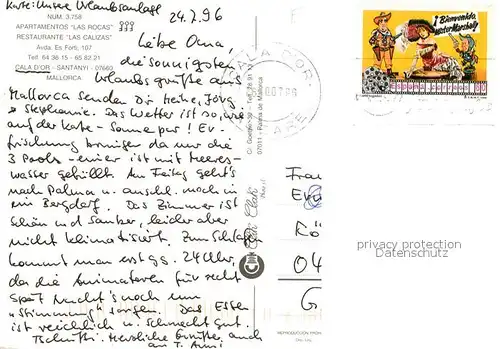 Karte: Unsere Urlaubsanlage
NUM. 3.758
24.7.96
APARTAMENTOS "LAS ROCAS"
RESTAURANTE "LAS CALIZAS"
Avda. Es Forti, 107
Telf. 64 36 15 - 65 82 21
CALA D'OR - SANTANYI - 07660
MALLORCA
Liebe Oma,
die sonnigsten
Urlaubsgrüße aus
Mallorca senden Dir Heike, Jörg
+ Stephanie. Das Wetter ist so, wie
auf der Karte - Sonne pur! Er-
frischung bringen da nur die
3 Pools - einer ist mit Meeres-
wasser gefüllt. Am Freitag geht's
nach Palma u. anschl. noch in
ein Bergdorf. Das Zimmer ist
schön und sauber, leider aber
nicht klimatisiert. Zum Schlafen
kommt man erst gg. 24 Uhr,
da die Animateure für recht
spät Nachts noch um
"Stimmung" sorgen. Das Essen
ist reichlich u. schmeckt gut.
Tschüß! Herzliche Grüße auch
an T. Anni
CALA D'OR
07011 - Palma de Mallorca
¡Bienvenido,
Mister Marshall!
Frau
04
G
privacy protection
Datenschutz